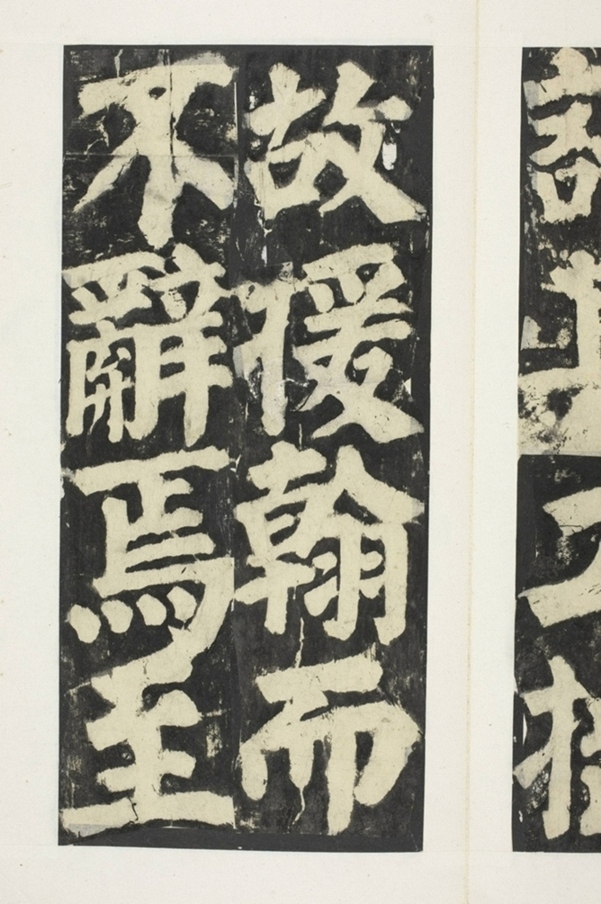 故援翰而
不辭焉至